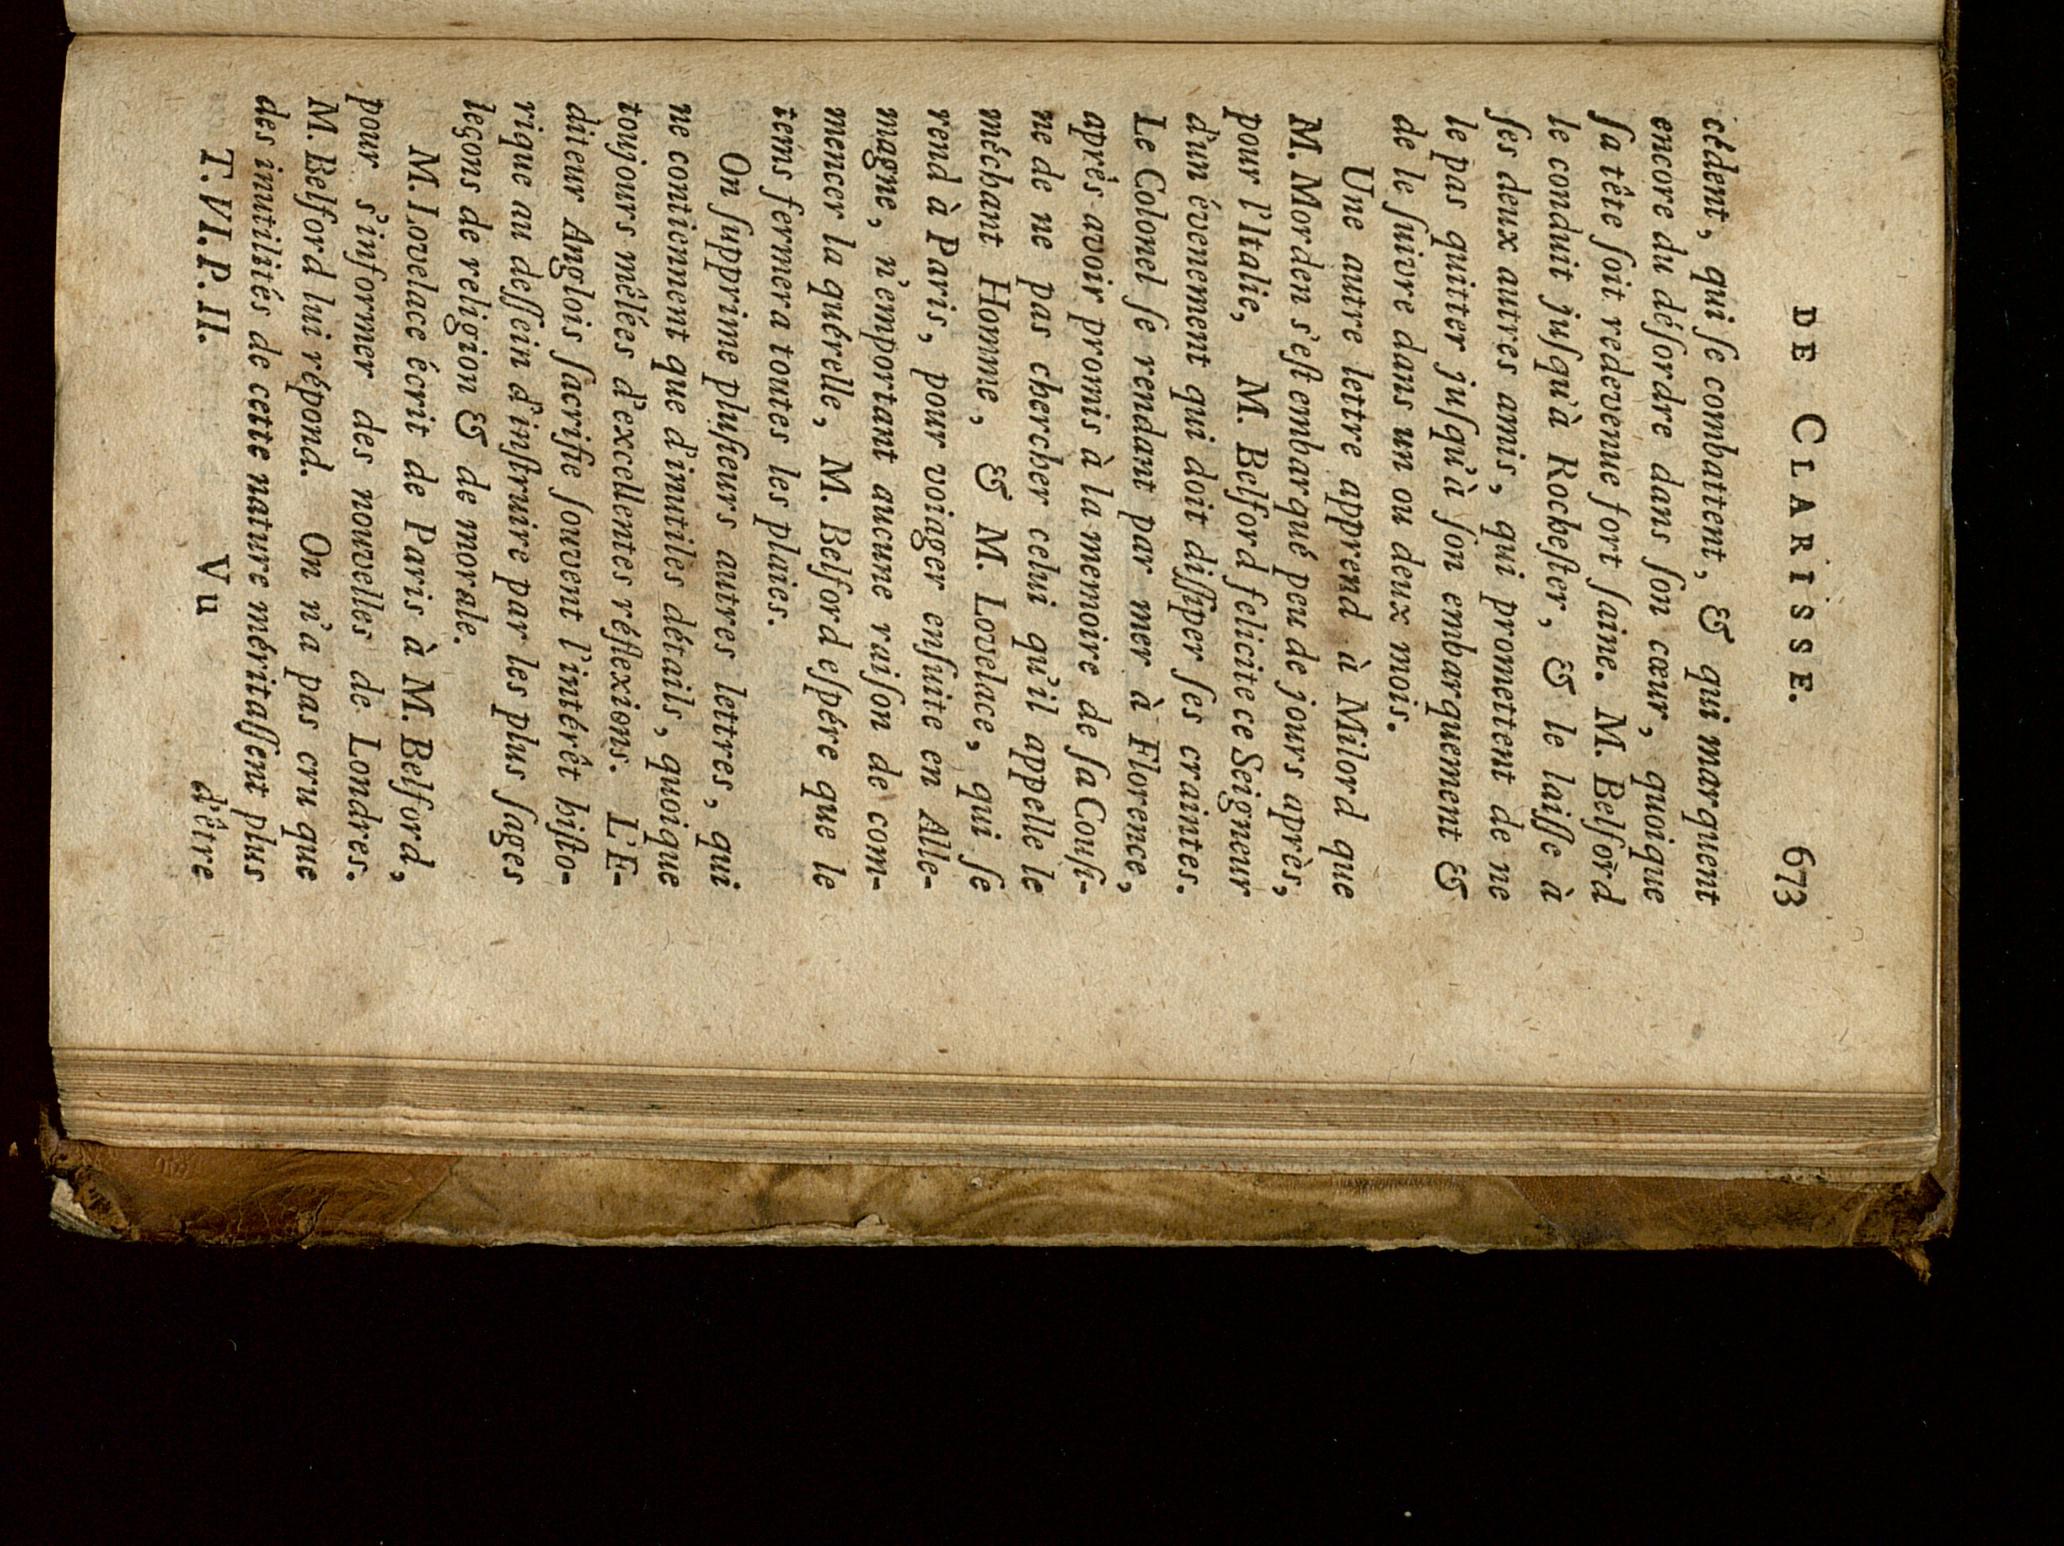 DE CLARISSE. 673
cédent, qui ſe combattent, & qui marquent
encore du déſordre dans ſon cœur, quoique
ſa tête ſoit redevenue fort ſaine. M. Belford
le conduit juſqu'à Rocheſter, & le laiſſe à
ſes deux autres amis, qui promettent de ne
le pas quitter juſqu'à ſon embarquement &
de le ſuivre dans un ou deux mois.
Une autre lettre apprend à Milord que
M. Morden s'eſt embarqué peu de jours après,
pour l'Italie, M. Belford felicite ce Seigneur
d'un évenement qui doit diſſiper ſes craintes.
Le Colonel ſe rendant par mer à Florence,
aprés avoir promis à la memoire de ſa Couſi-
ne de ne pas chercher celui qu'il appelle le
méchant Homme, & M. Lovelace, qui ſe
rend à Paris, pour voiager enſuite en Alle-
magne, n'emportant aucune raiſon de com-
mencer la quérelle, M. Belford eſpére que le
tems fermera toutes les plaies.
On ſupprime pluſieurs autres lettres, qui
ne contiennent que d'inutiles détails, quoique
toujours mêlées d'excellentes réflexions. L'E-
diteur Anglois ſacrifie ſouvent l'intérêt hiſto-
rique au deſſein d'inſtruire par les plus ſages
leçons de religion & de morale.
M. Lovelace écrit de Paris à M. Belford,
pour s'informer des nouvelles de Londres.
M. Belford lui répond. On n'a pas cru que
des inutilités de cette nature méritaſſent plus
T. VI. P. II. Vu d'être